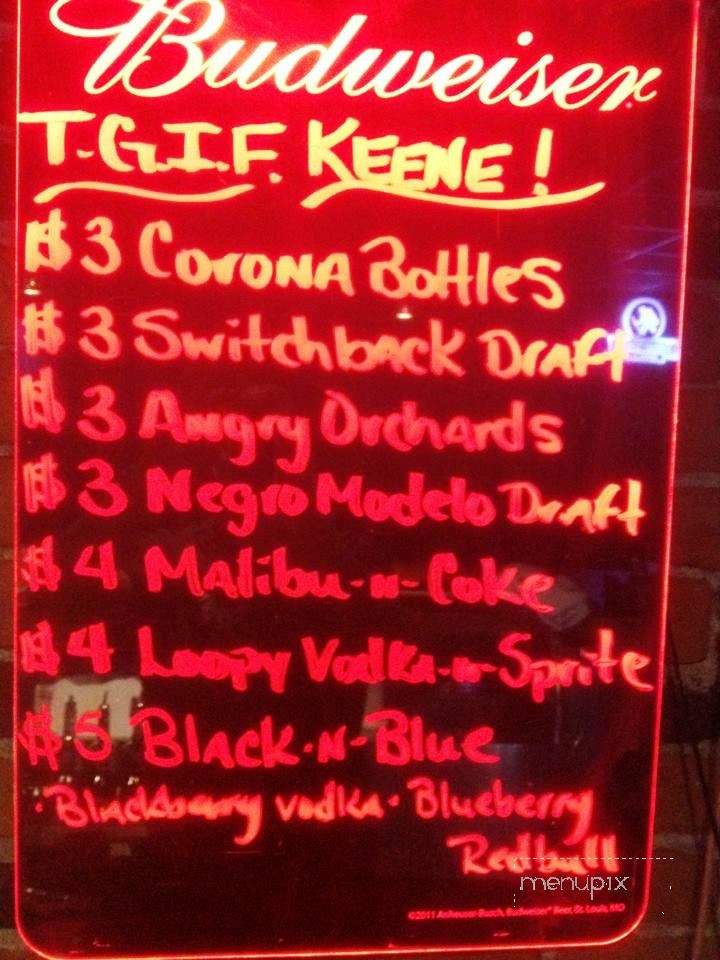 Budweiser
T.G.I.F. KEENE!
$3 Corona Bottles
$3 Switchback Draft
$3 Angry Orchards
$3 Negro Modelo Draft
$4 Malibu-n-Coke
$4 Loopy Vodka-n-Sprite
$5 Black-N-Blue
·Blackberry vodka· Blueberry
Redbull
menupix
©2011 Anheuser-Busch, Budweiser® Beer, St. Louis, MO